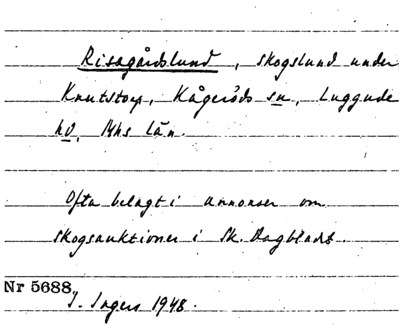 Risagårdslund, skogslund under
Knutstorp, Kågeröds sn, Luggude
hd, Mhs län.
Ofta belagt i annonser om
skogsauktioner i Sk. Dagbladet.
Nr 5688.
I. Ingers 1948.